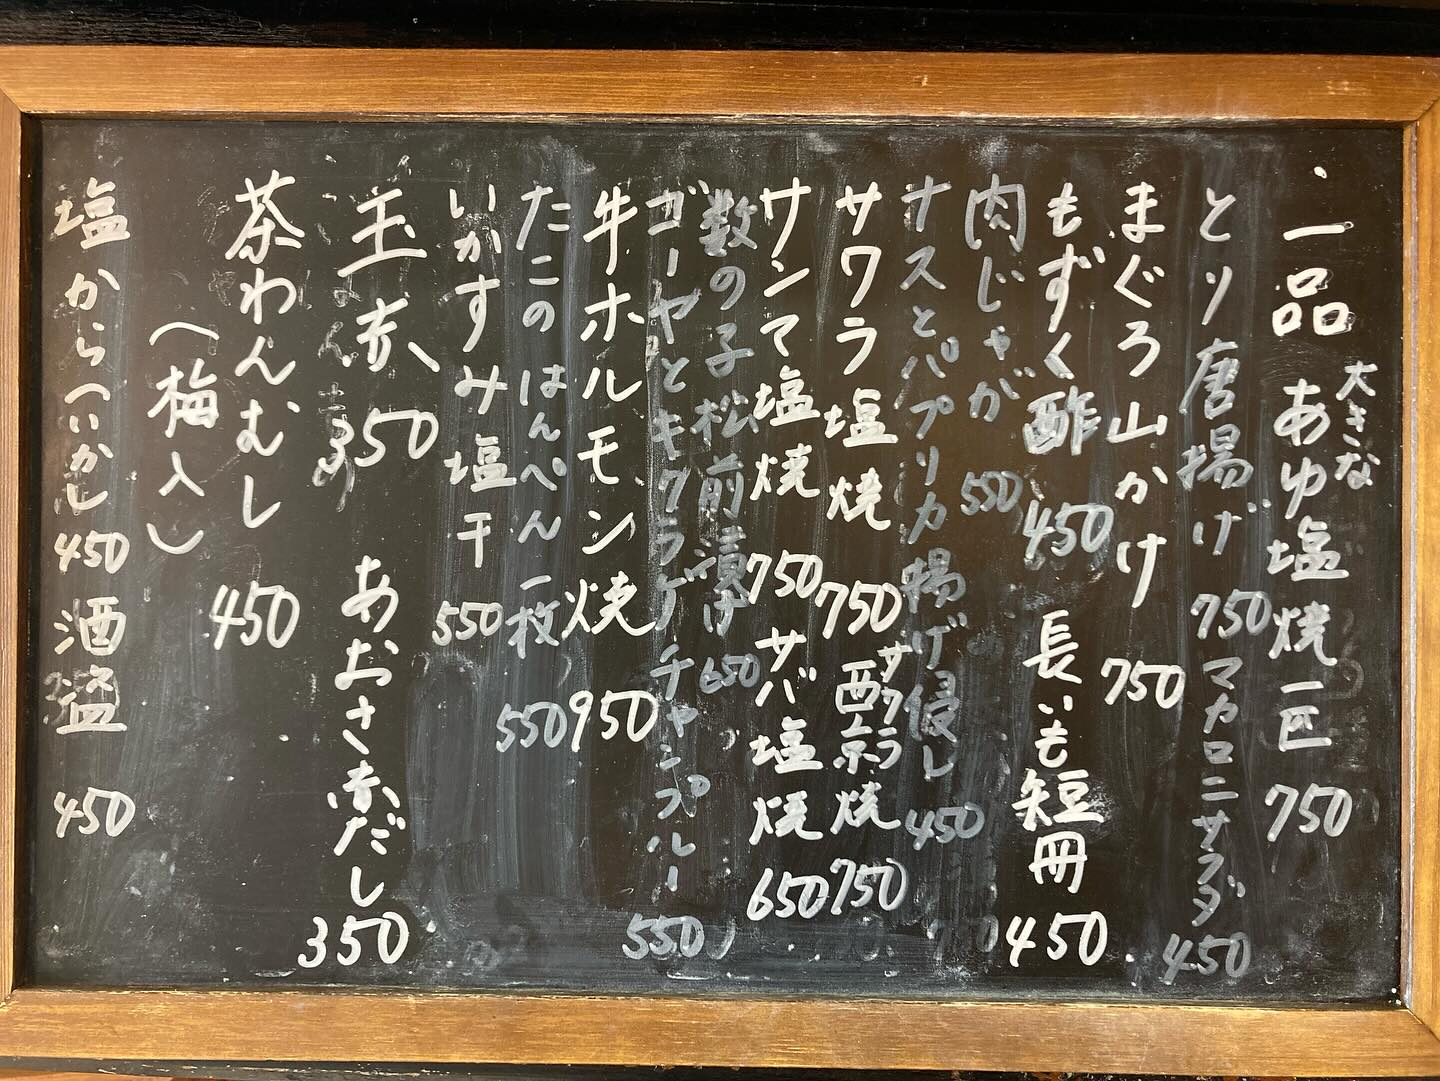 一品 大きな あゆ塩焼一匹 750
とり唐揚げ 750 マカロニサラダ 450
まぐろ山かけ 750
もずく酢 450 長いも短冊 450
肉じゃが 550
ナスとパプリカ揚げ浸し 450
サワラ塩焼 750 サワラ西京焼 750
サンマ塩焼 750 サバ塩焼 650
数の子松前漬け 650
ゴーヤとキクラゲチャンプルー 550
牛ホルモン焼 950
たこのはんぺん一枚 550
いかすみ塩干 550
玉衣 350 あおさ赤だし 350
茶わんむし 450
(梅入)
塩から(いか) 450 酒盗 450